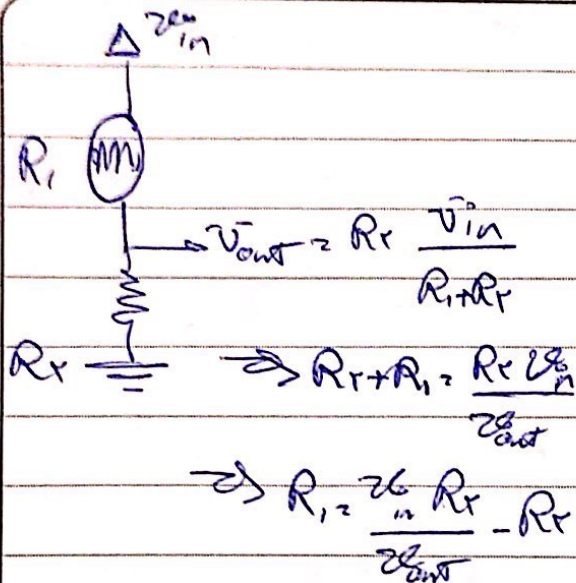 V_in
R₁
V_out = R₂ V_in / (R₁+R₂)
R₂
⇒ R₂+R₁ = R₂ V_in / V_out
⇒ R₁ = V_in R₂ / V_out - R₂